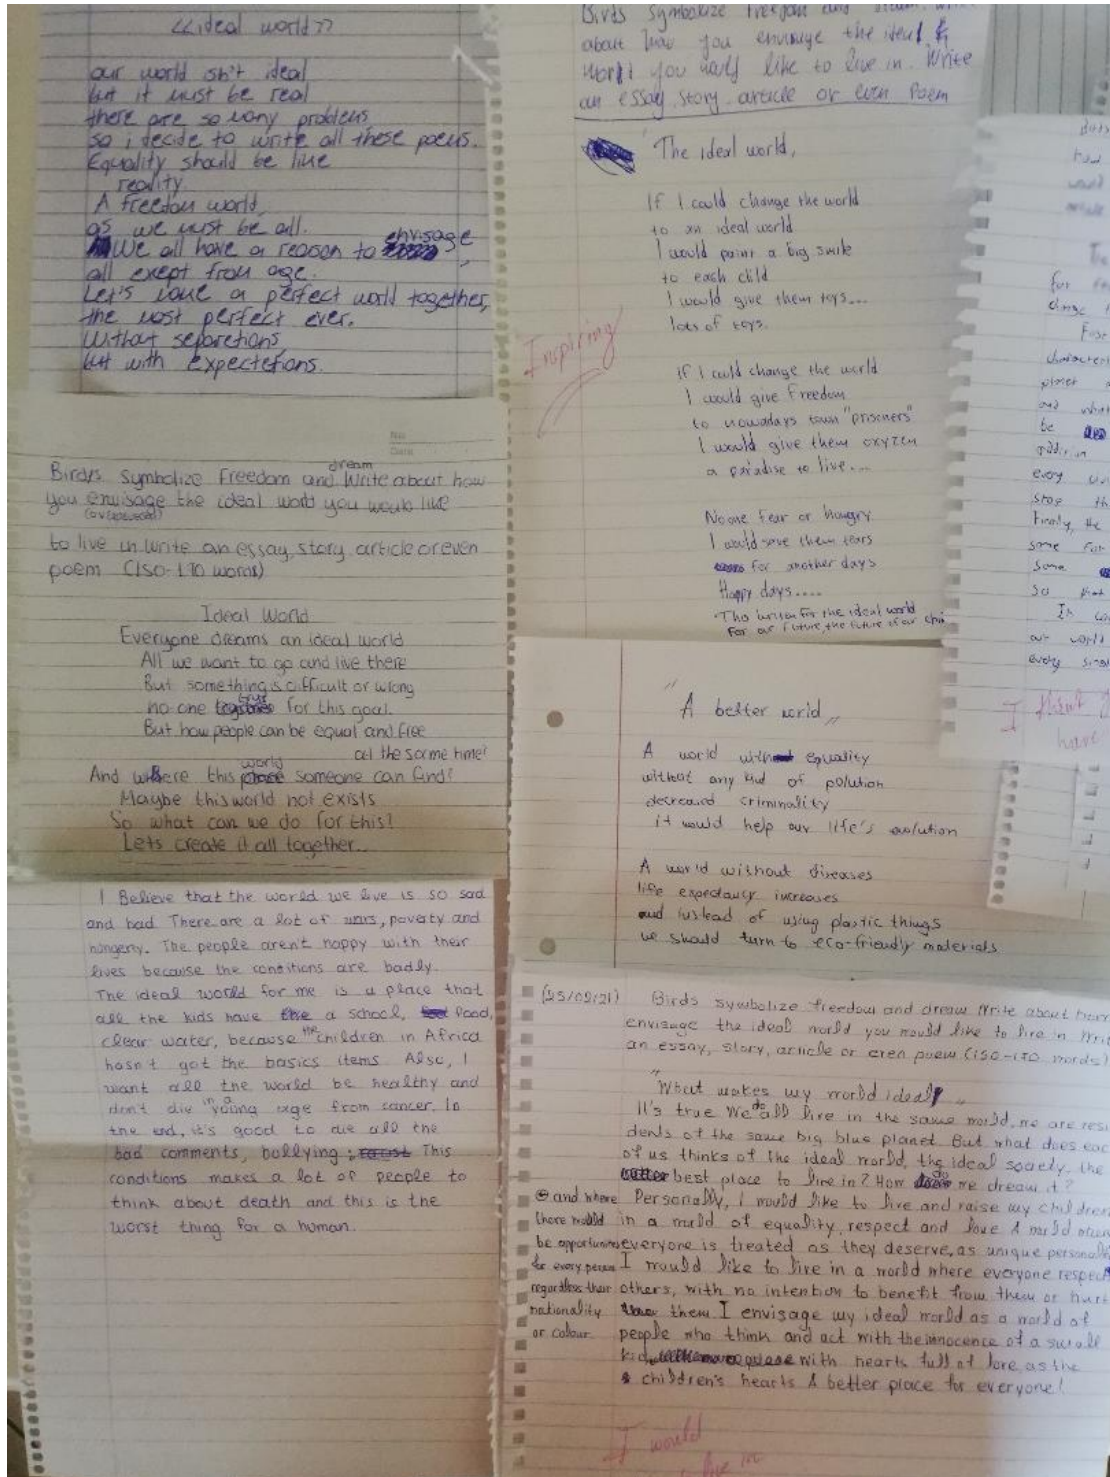 <<ideal world>>
our world isn't ideal
but it must be real
there are so many problems
so i decide to write all these poems.
Equality should be like
reality.
A freedom world,
as we must be all.
We all have a reason to envisage,
all exept from age.
Let's have a perfect world together,
the most perfect ever.
Without separetions
but with expectetions.
Birds symbolize freedom and dream. Write about how
you envisage the ideal world you would like
to live in. Write an essay, story, article or even
poem (150-170 words)
Ideal World
Everyone dreams an ideal world
All we want to go and live there
But something is difficult or wrong
no one trys for this goal.
But how people can be equal and free
at the same time?
And where this world someone can find?
Maybe this world not exists
So what can we do for this?
Lets create it all together...
I Believe that the world we live is so sad
and bad There are a lot of wars, povaty and
hungery. The people aren't happy with their
lives because the conditions are badly.
The ideal world for me is a place that
all the kids have a school, food,
clear water, because the children in Africa
hasn't got the basics items. Also, I
want all the world be healthy and
don't die in a young age from cancer. In
the end, it's good to die all the
bad comments, bullying. This
conditions makes a lot of people to
think about death and this is the
worst thing for a human.
Birds symbolize freedom and
about how you envisage the ideal
world you would like to live in. Write
an essay, story, article or even Poem
The ideal world,
If I could change the world
to an ideal world
I would paint a big smile
to each child
I would give them toys...
lots of toys.
If I could change the world
I would give Freedom
to nowadays town "prisoners"
I would give them oxyzen
a paradise to live...
No one fear or hungry
I would save them tears
for another days
Happy days....
for the ideal world
For our future, the future of our
Inspiring
"A better world"
A world with equality
without any kind of polution
decreased criminality
it would help our life's evolution
A world without diseases
life expectancy increases
and instead of using plastic things
we should turn to eco-friendly materials
(25/02/21) Birds symbolize freedom and dream Write about how
envisage the ideal world you would like to live in Writ
an essay, story, article or even poem (150-170 words)
"What makes my world ideal"
It's true We do all live in the same world, we are resi
dents of the same big blue planet. But what does eac
of us thinks of the ideal world, the ideal society, the
best place to live in? How do we dream it?
Personally, I would like to live and raise my children
in a world of equality, respect and love A world where
everyone is treated as they deserve, as unique personali
I would like to live in a world where everyone respec
others, with no intention to benefit from them or hurt
them I envisage my ideal world as a world of
people who think and act with the innocence of a small
kid, with hearts full of love as the
children's hearts A better place for everyone!
and where
there would
be opportunities
for every person
regardless their
nationality
or colour
I would
live in
for
change
characteri
planet
and what
be
addition
every
stop th
Finally, the
some for
some
so that
In
our world
every singl
I think
have